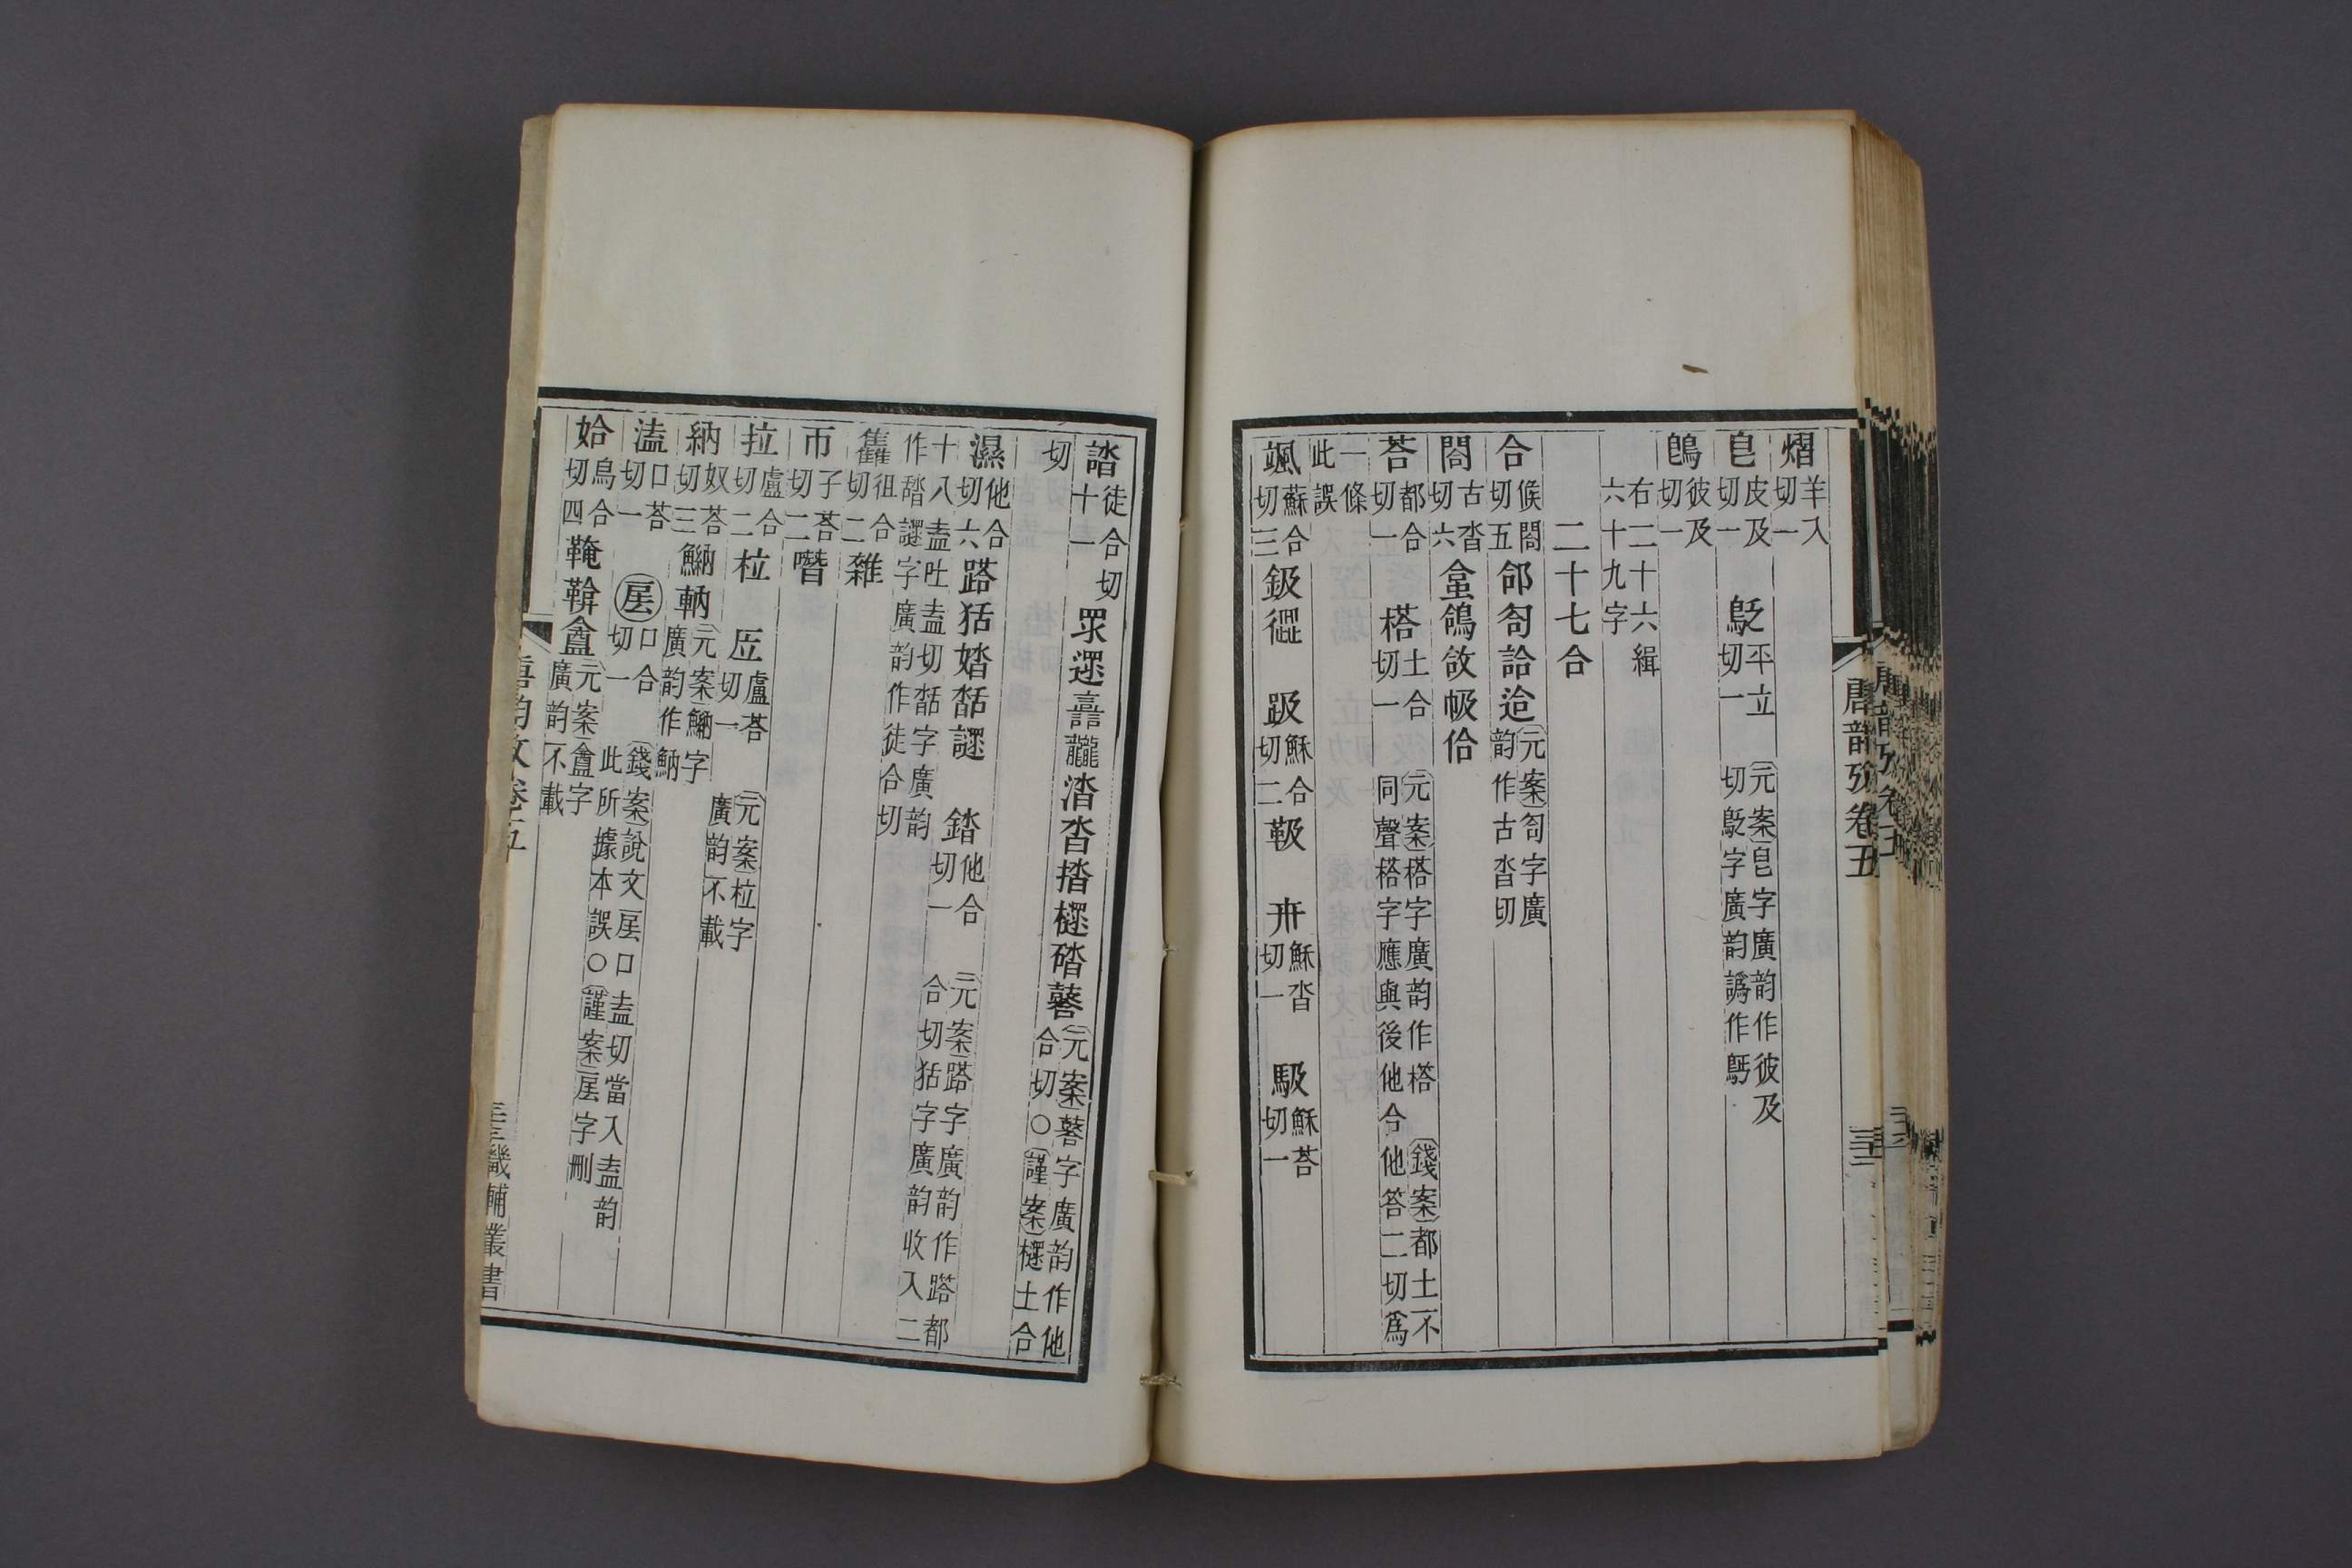 唐韵攷卷五
熠羊入切一
皀皮及切一 鴔平立切一 元案皀字廣韵作彼及切鴔字廣韵譌作鴔
鵖彼及切一
右二十六緝六十九字
二十七合
合候閤切五郃匌詥迨元案匌字廣韵作古沓切
閤古沓切六䶀鴿敆帢佮
荅都合切一 榙土合切一 元案榙字廣韵作榙同聲榙字應與後他合他答二切爲
錢案都土不
一條此誤
颯蘇合切三鈒㒊 趿穌合切二靸 卅穌沓切一 馺穌荅切一
誻徒合切十一切
眔遝譶龖涾沓揩㯚磖𦿉元案𦿉字廣韵作他合切○謹案㯚土合
切
濕他合切六䠛狧婚䑜䜚 錔他合切一 元案䠛字廣韵作䠛都合切狧字廣韵收入二
十八盍吐盍切䑜字廣韵作䜚字廣韵作徒合切
雥徂合切二雜
帀子荅切二噆
拉盧合切二柆 㕇盧荅切一 元案柆字廣韵不載
納奴荅切三魶軜元案魶字廣韵作魶
溘口荅切一 㕎口合切一 錢案說文㕎口盍切當入盍韵此所據本誤○謹案㕎字刪
姶烏合切四䩩鞥盦元案盦字廣韵不載
唐韵攷卷五
畿輔叢書